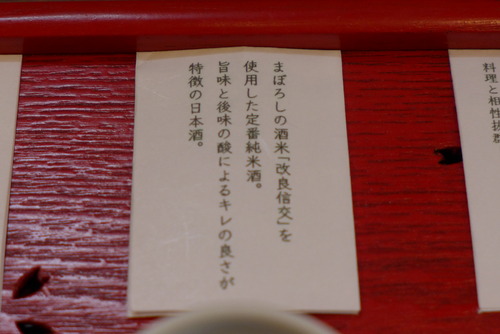 まぼろしの酒米「改良信交」を
使用した定番純米酒。
旨味と後味の酸によるキレの良さが
特徴の日本酒。
料理と相性抜群